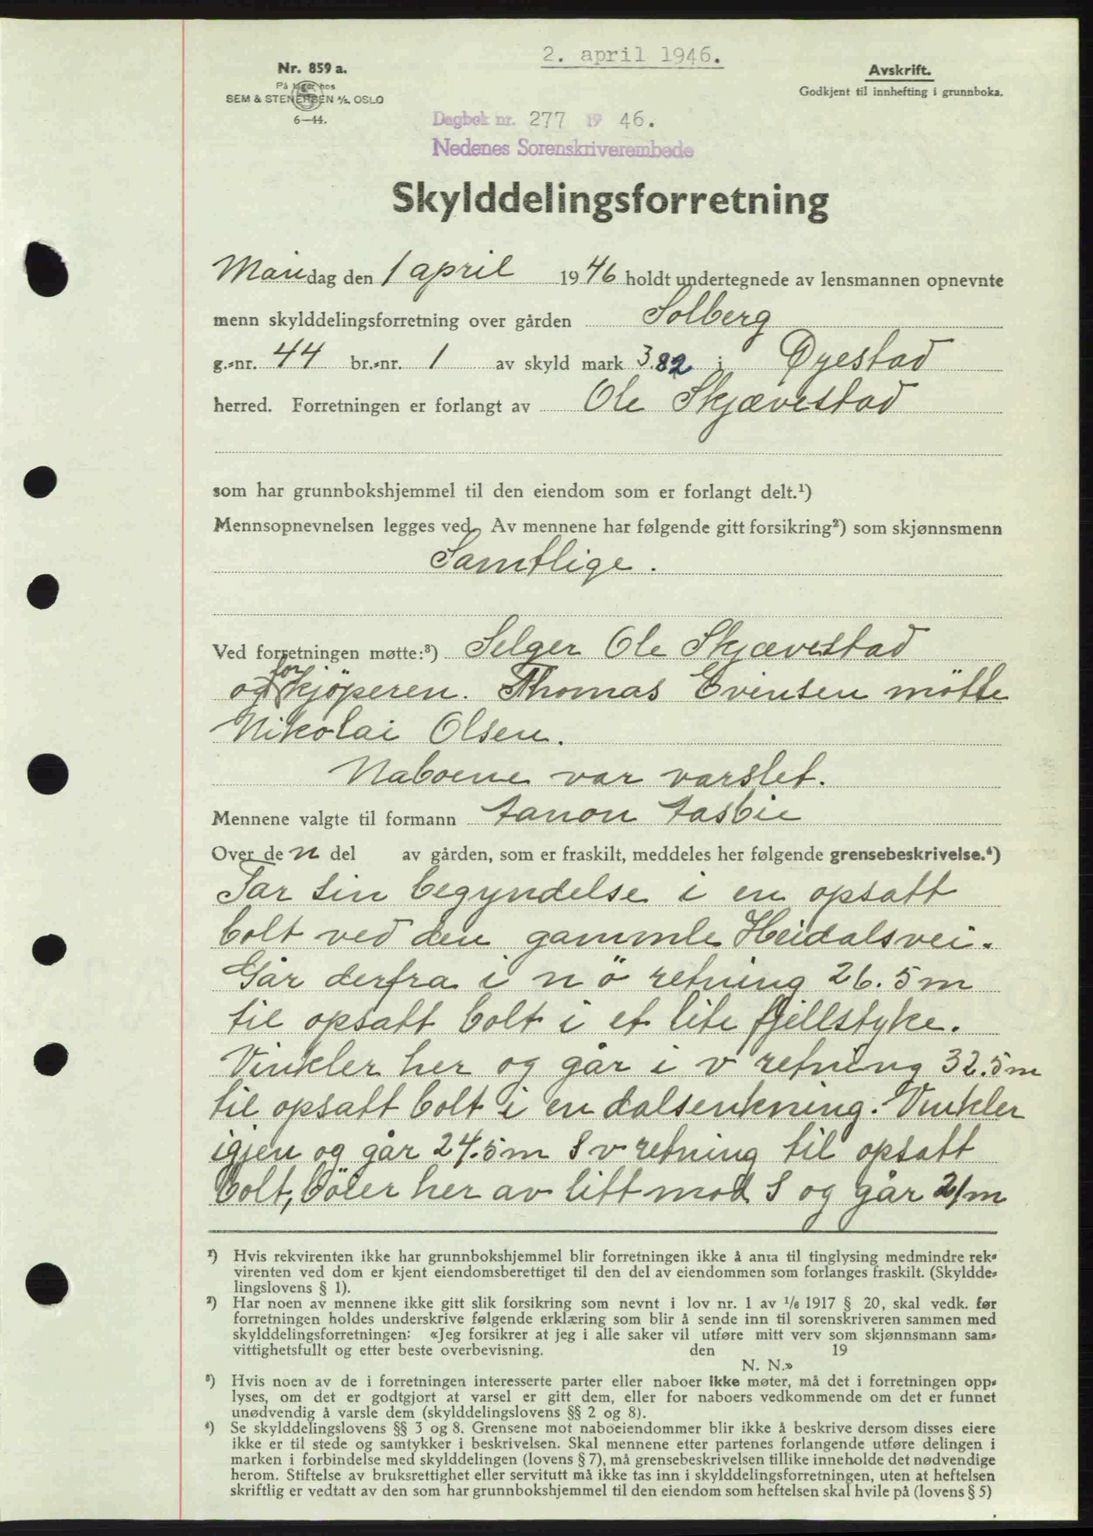 2. april 1946.
Nr. 859 a.
På lager hos
SEM & STENERSEN A/S, OSLO
6—44.
Avskrift.
Godkjent til innhefting i grunnboka.
Dagbok nr. 277 19 46.
Nedenes Sorenskriverembede
Skylddelingsforretning
Mandag den 1 april 1946 holdt undertegnede av lensmannen opnevnte
menn skylddelingsforretning over gården Solberg
g.-nr. 44 br.-nr. 1 av skyld mark 3.82 i Øyestad
herred. Forretningen er forlangt av Ole Skjævestad
som har grunnbokshjemmel til den eiendom som er forlangt delt.¹)
Mennsopnevnelsen legges ved. Av mennene har følgende gitt forsikring²) som skjønnsmenn
Samtlige.
Ved forretningen møtte:³) Selger Ole Skjævestad
og for kjöperen. Thomas Evensen mötte
Nikolai Olsen.
Naboene var varslet.
Mennene valgte til formann Aanon Aasbie
Over den del av gården, som er fraskilt, meddeles her følgende grensebeskrivelse.⁴)
Tar sin begyndelse i en opsatt
bolt ved den gammle Heidalsvei.
Går derfra i n ö retning 26.5 m
til opsatt bolt i et lite fjellstyke.
Vinkler her og går i v retning 32.5 m
til opsatt bolt i en dalsenkning. Vinkler
igjen og går 24.5 m S v retning til opsatt
bolt, böier her av litt mod S og går 21 m
¹) Hvis rekvirenten ikke har grunnbokshjemmel blir forretningen ikke å anta til tinglysing medmindre rek-
virenten ved dom er kjent eiendomsberettiget til den del av eiendommen som forlanges fraskilt. (Skyldde-
lingslovens § 1).
²) Har noen av mennene ikke gitt slik forsikring som nevnt i lov nr. 1 av 1/6 1917 § 20, skal vedk. før
forretningen holdes underskrive følgende erklæring som blir å sende inn til sorenskriveren sammen med
skylddelingsforretningen: «Jeg forsikrer at jeg i alle saker vil utføre mitt verv som skjønnsmann sam-
vittighetsfullt og etter beste overbevisning. den 19
N. N.»
³) Hvis noen av de i forretningen interesserte parter eller naboer ikke møter, må det i forretningen opp-
lyses, om det er godtgjort at varsel er gitt dem, eller for naboers vedkommende om det er funnet
unødvendig å varsle dem (skylddelingslovens §§ 2 og 8).
⁴) Se skylddelingslovens §§ 3 og 8. Grensene mot naboeiendommer blir ikke å beskrive dersom disses eiere
ikke er til stede og samtykker i beskrivelsen. Skal mennene etter partenes forlangende utføre delingen i
marken i forbindelse med skylddelingen (lovens § 7), må grensebeskrivelsen tillike inneholde det nødvendige
herom. Stiftelse av bruksrettighet eller servitutt må ikke tas inn i skylddelingsforretningen, uten at heftelsen
skriftlig er vedtatt av den som har grunnbokshjemmel til den eiendom som heftelsen skal hvile på (lovens § 5)